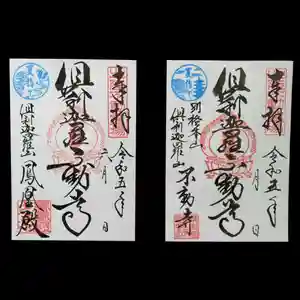 奉拝
令和五年
二月
日
倶利迦羅不動尊
倶利迦羅山
鳳凰殿
奉拝
令和五年
月
日
倶利迦羅不動尊
別格本山
倶利迦羅山
不動寺